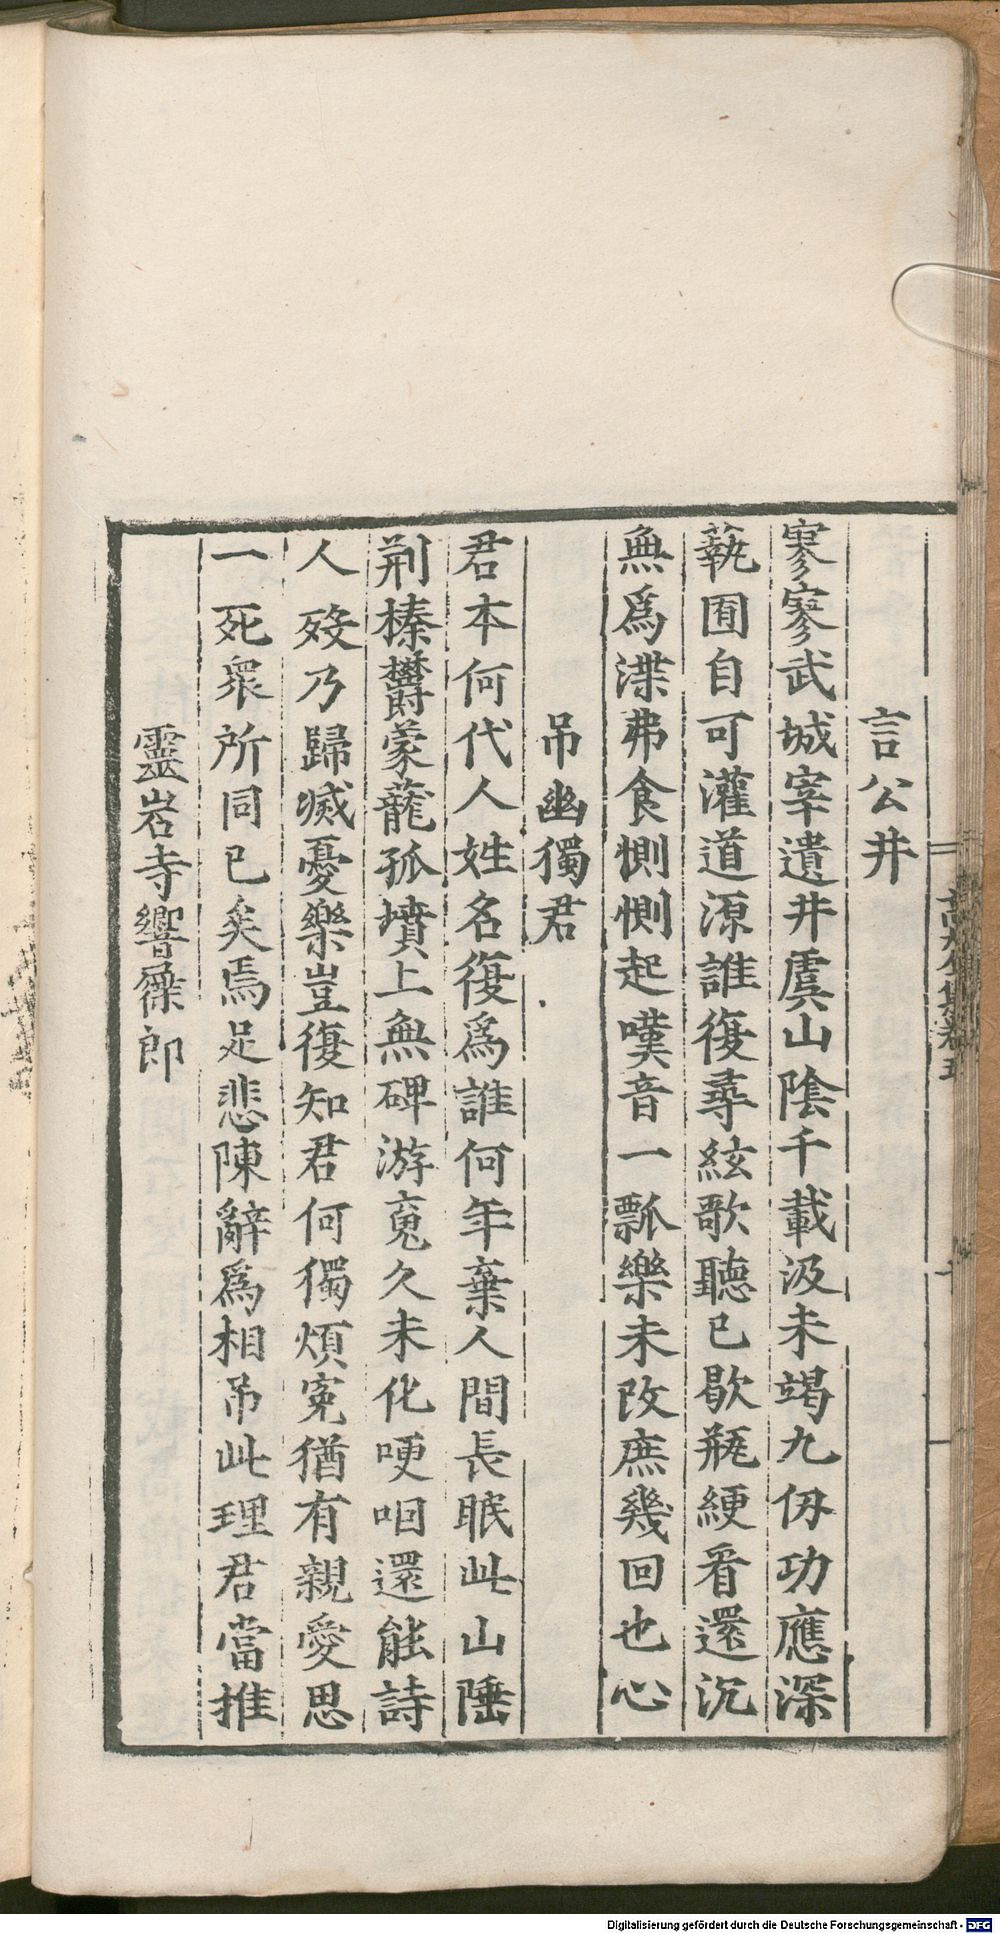 言公井
寥寥武城宰遺井虞山陰千載汲未竭九仞功應深
蓺囿自可灌道源誰復尋絃歌聽已歇瓶綆看還沉
無爲渫弗食惻惻起嘆音一瓢樂未改庶幾回也心
吊幽獨君
君本何代人姓名復爲誰何年棄人間長眠此山陲
荆榛鬱蒙蘢孤墳上無碑游䰟久未化哽咽還能詩
人歿乃歸滅憂樂豈復知君何獨煩寃猶有親愛思
一死衆所同已矣焉足悲陳辭爲相吊此理君當推
靈岩寺響屧郎
Digitalisierung gefördert durch die Deutsche Forschungsgemeinschaft - DFG